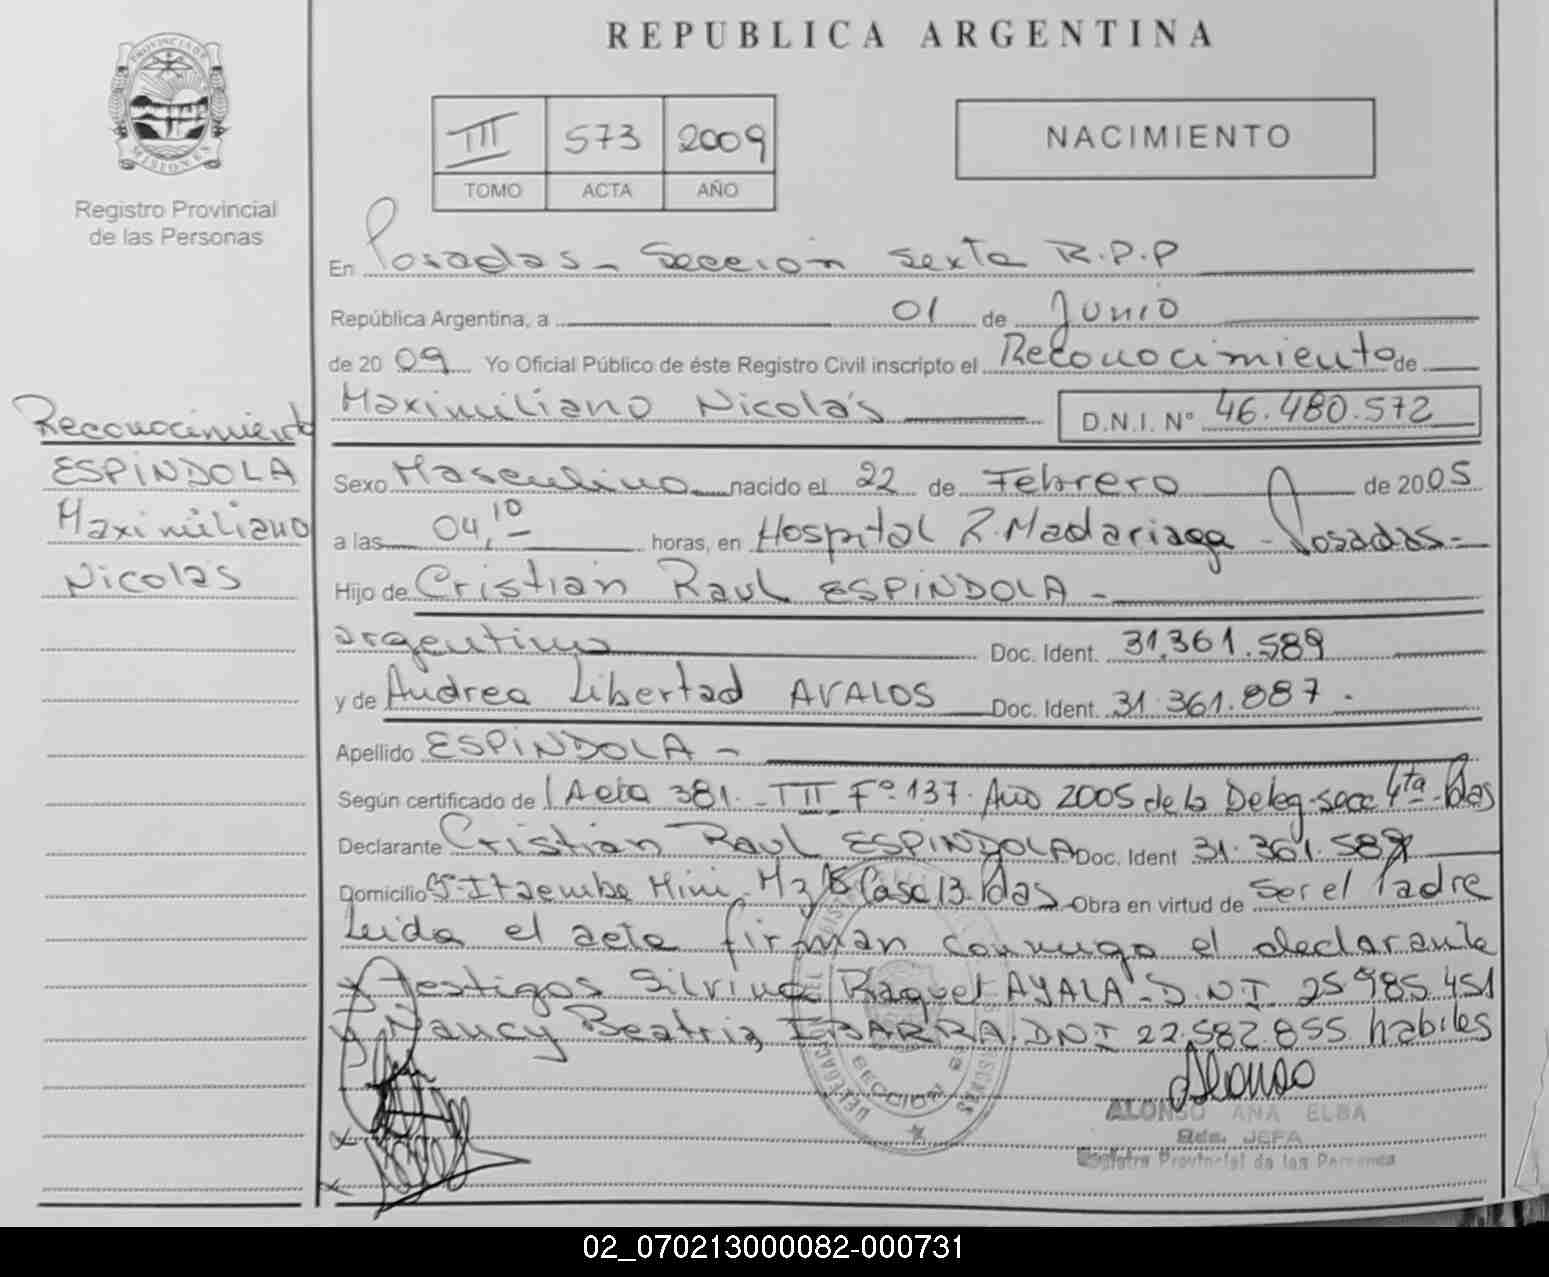 REPUBLICA ARGENTINA
PROVINCIA DE
MISIONES
Registro Provincial
de las Personas
III 573 2009
TOMO ACTA AÑO
NACIMIENTO
En Posadas - Sección Sexta R.P.P
República Argentina, a 01 de Junio
de 2009 Yo Oficial Público de éste Registro Civil inscripto el Reconocimiento de
Maximiliano Nicolás D.N.I. Nº 46.480.572
Reconocimiento
ESPINDOLA
Maximiliano
Nicolás
Sexo Masculino nacido el 22 de Febrero de 2005
a las 04,10 horas, en Hospital R. Madariaga - Posadas-
Hijo de Cristian Raul ESPINDOLA -
argentino Doc. Ident. 31.361.589
y de Andrea Libertad AVALOS Doc. Ident. 31.361.887.
Apellido ESPINDOLA -
Según certificado de Acta 381. TII Fº 137. Año 2005 de la Deleg. secc 4ta. Pdas
Declarante Cristian Raul ESPINDOLA Doc. Ident 31.361.589
Domicilio Itaembe Mini Mz Casa 13. Pdas Obra en virtud de ser el Padre
Leida el acta firman conmigo el declarante
y testigos Silvina Raquel AYALA D.N.I. 25.985.451
y Nancy Beatriz IBARRA. DNI 22.582.855 habiles
SECCION
Alonso
ALONSO ANA ELBA
JEFA
Registro Provincial de las Personas
02_070213000082-000731